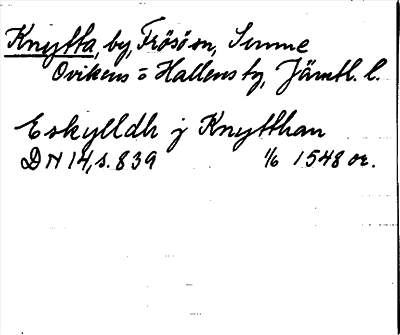 Knytta, by, Frösö sn, Sunne
Ovikens o Hallens tg, Jämtl. l.
Eskylldh j Knytthan
DN 14, s. 839 1/6 1548 or.